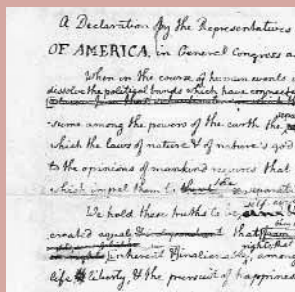 A Declaration by the Representatives
OF AMERICA, in General Congress a
When in the course of human events
dissolve the political bands which have connected
-sume among the powers of the earth the
which the laws of nature & of nature's god
to the opinions of mankind requires that
which impel them to the separatio
We hold these truths to be
self evi
created equal that
rights; that
inherent & inalienable, among
life & liberty, & the pursuit of happines